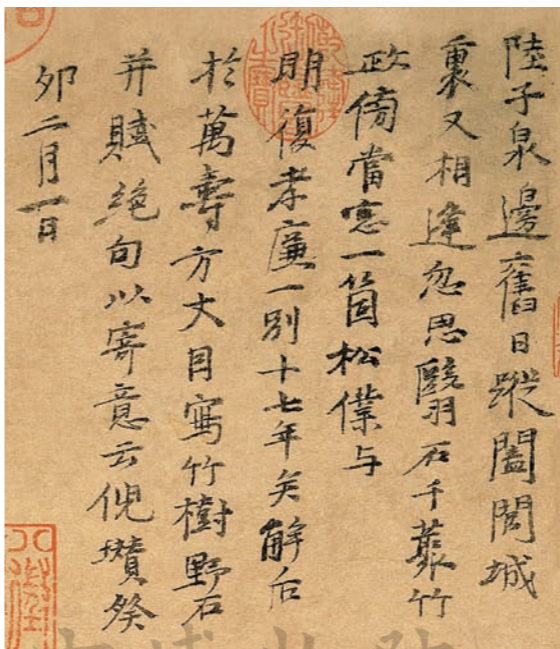 陸子泉邊舊日蹤闔閭城
裏又相逢忽思翳石千叢竹
政傍當窓一箇松僕与
明復孝廉一別十七年矣解后
於萬壽方丈因寫竹樹野石
并賦絶句以寄意云倪瓚癸
卯二月一日